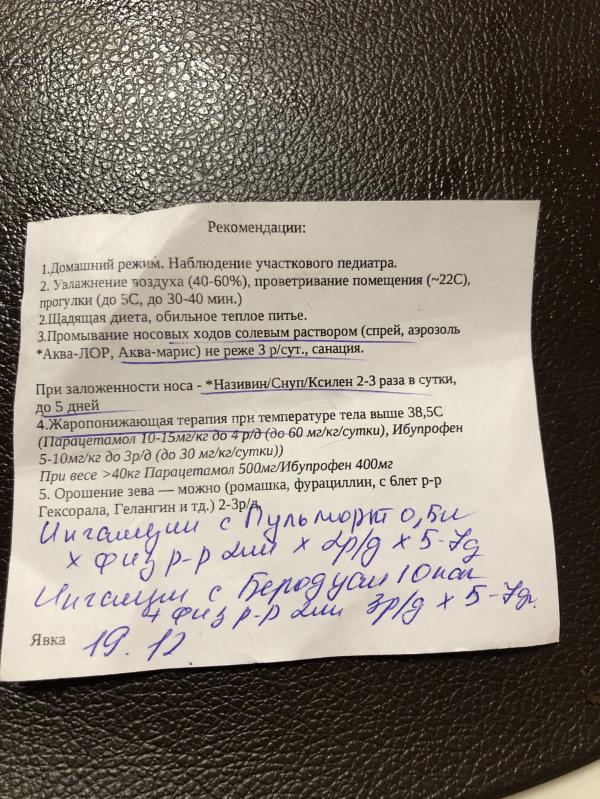 Рекомендации:
1.Домашний режим. Наблюдение участкового педиатра.
2. Увлажнение воздуха (40-60%), проветривание помещения (~22С),
прогулки (до 5С, до 30-40 мин.)
2.Щадящая диета, обильное теплое питье.
3.Промывание носовых ходов солевым раствором (спрей, аэрозоль
*Аква-ЛОР, Аква-марис) не реже 3 р/сут., санация.
При заложенности носа - *Називин/Снуп/Ксилен 2-3 раза в сутки,
до 5 дней
4.Жаропонижающая терапия при температуре тела выше 38,5С
(Парацетамол 10-15мг/кг до 4 р/д (до 60 мг/кг/сутки), Ибупрофен
5-10мг/кг до 3р/д (до 30 мг/кг/сутки))
При весе >40кг Парацетамол 500мг/Ибупрофен 400мг
5. Орошение зева — можно (ромашка, фурациллин, с 6лет р-р
Гексорала, Гелангин и тд.) 2-3р/д.
Ингаляции с Пульморт 0,5м
х физ р-р 2мл х 2р/д х 5-7д
Ингаляции с Беродуал 10кап
+ физ р-р 2мл 3р/д х 5-7д.
Явка 19.12